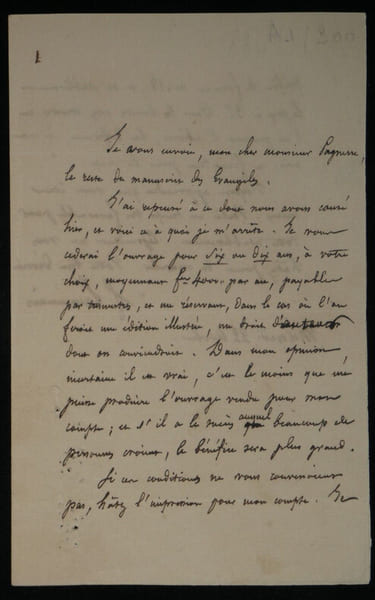 1
Je vous envoie, mon cher monsieur Pagnerre,
le reste du manuscrit des Evangiles.
J'ai repensé à ce dont nous avons causé
hier, et voici ce à quoi je m'arrête. Je vous
céderai l'ouvrage pour six ou dix ans, à votre
choix, moyennant 4000 par an, payables
par trimestres, et me réservant, dans le cas où l'on
feroit une édition illustrée, un droit d'auteur
dont on conviendroit. Dans mon opinion,
incertaine il est vrai, c'est le moins que me
puisse produire l'ouvrage vendu pour mon
compte; et s'il a le succès auquel beaucoup de
personnes croient, le bénéfice sera plus grand.
Si ces conditions ne vous convenoient
pas, hâtez l'impression pour mon compte. Je